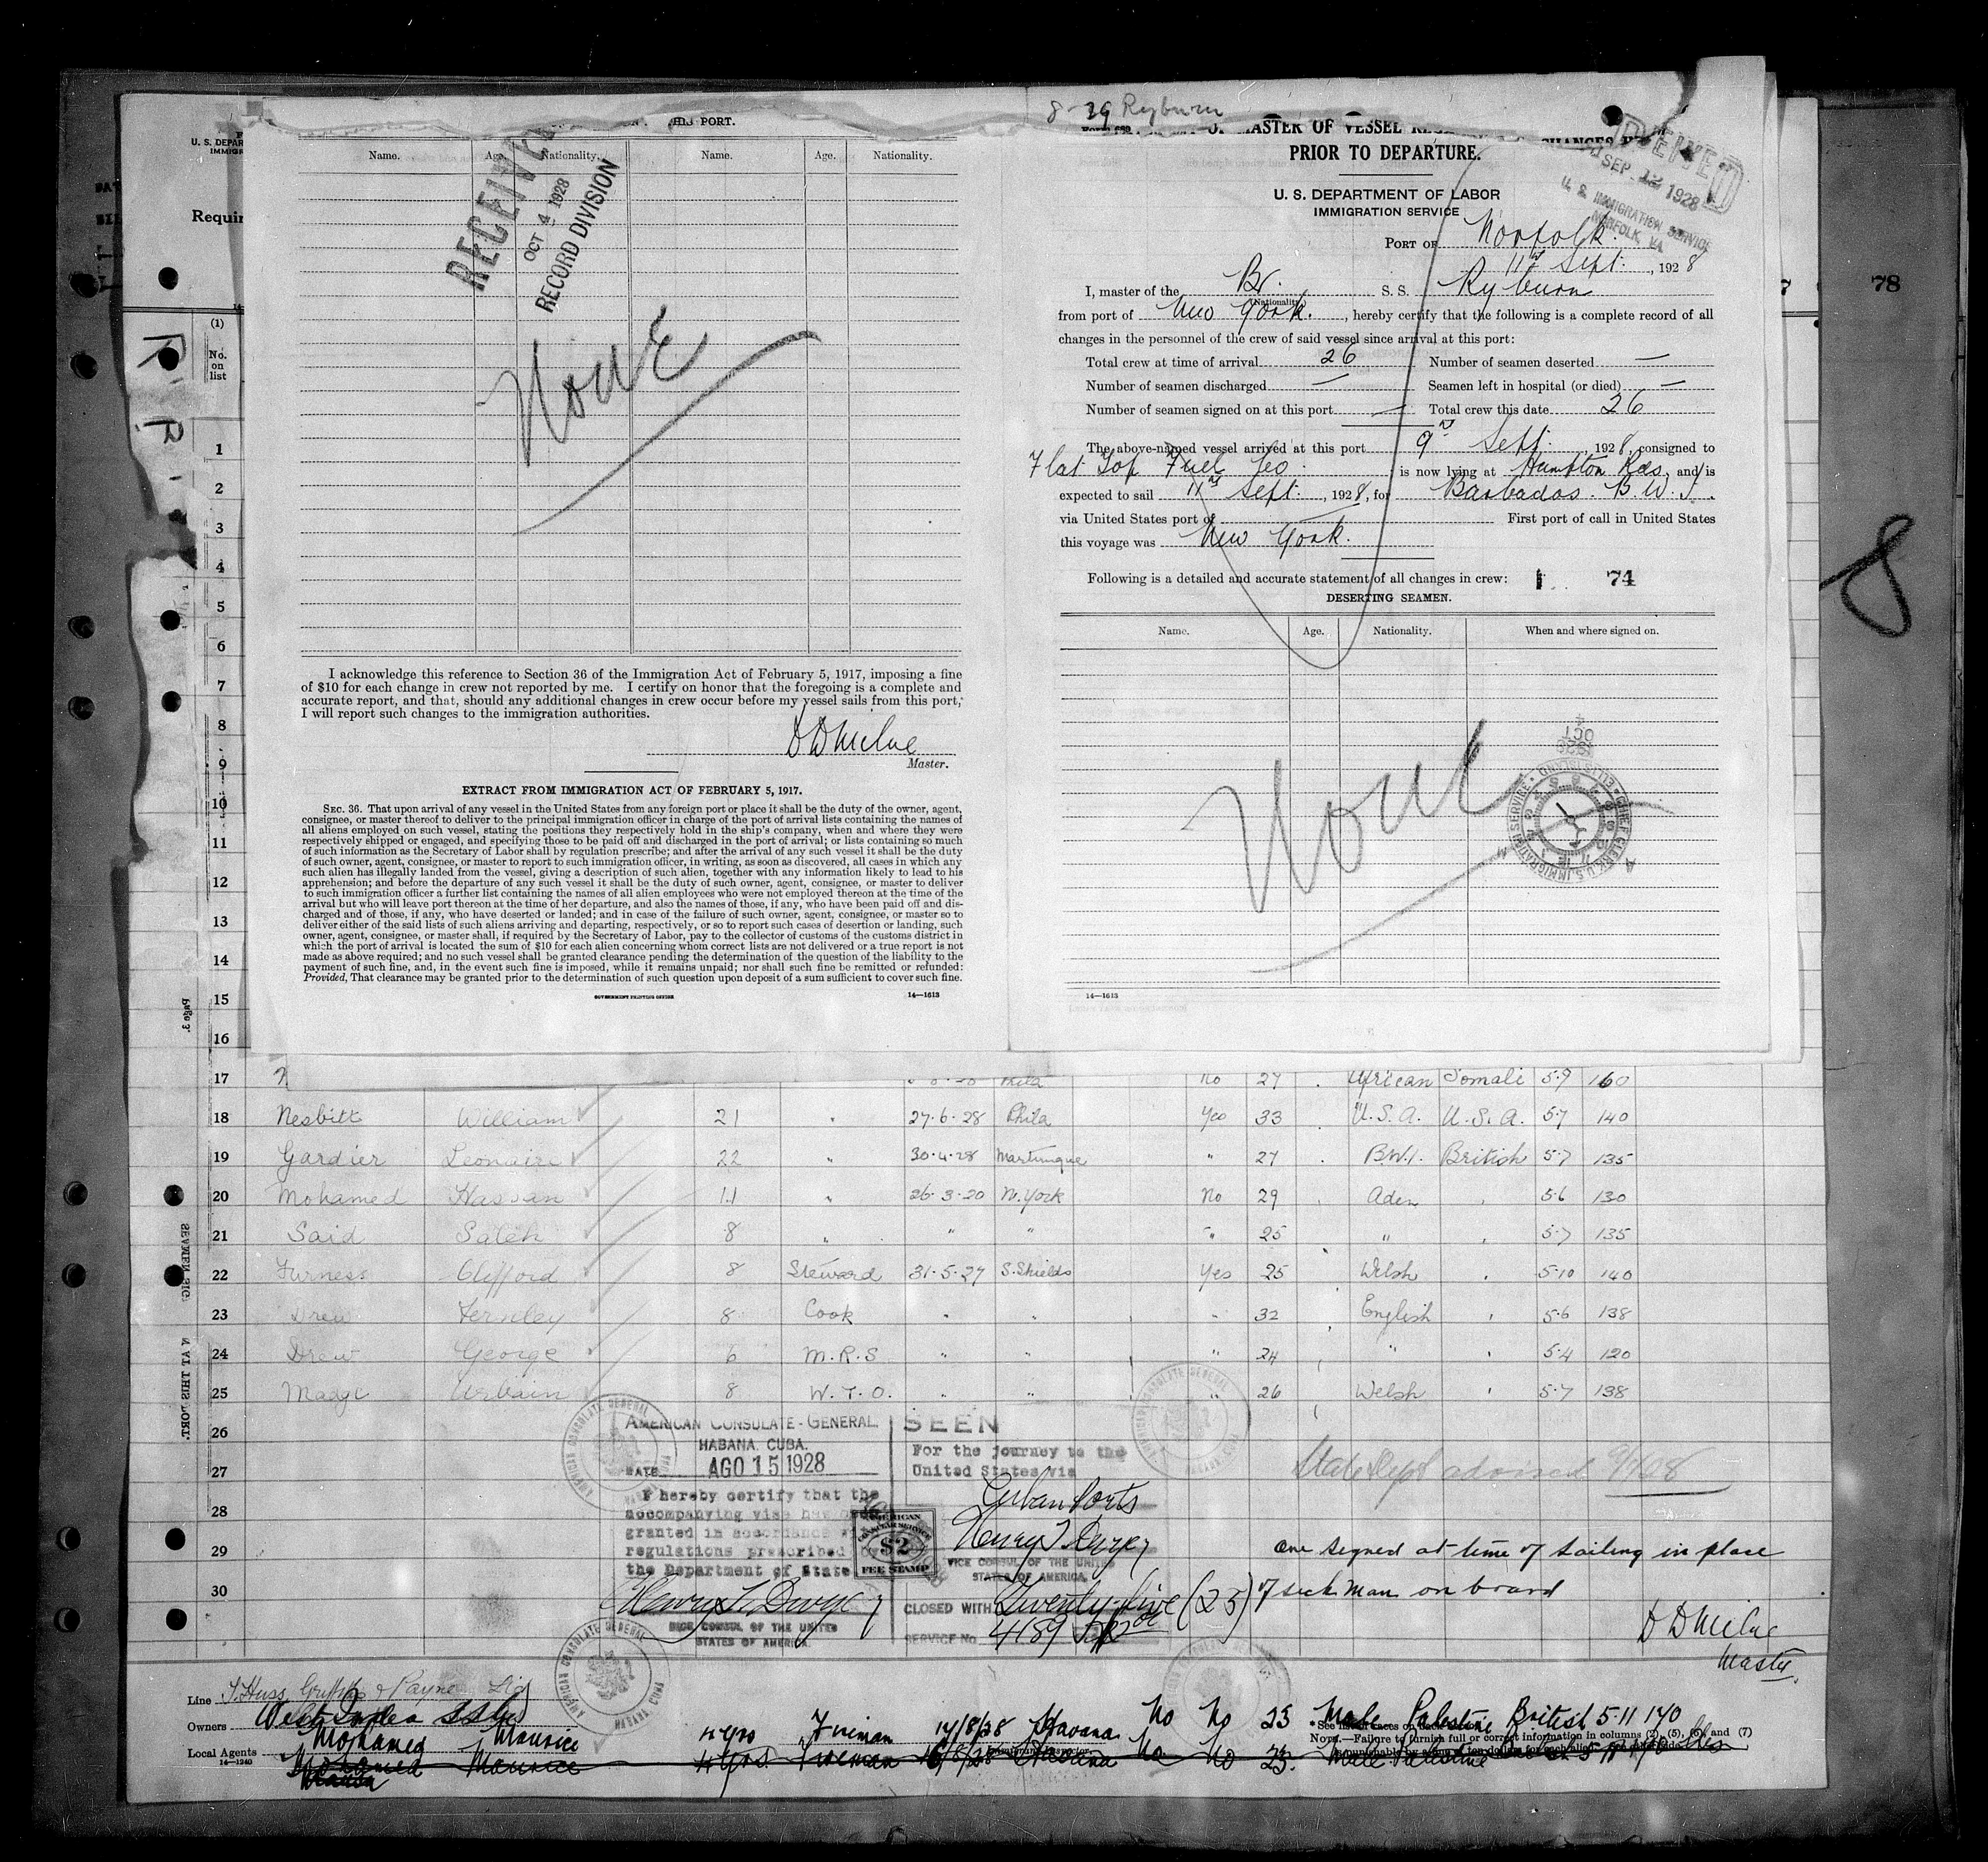 8-29 Ryburn
THIS PORT.
Name. Age. Nationality. Name. Age. Nationality.
RECEIVED
OCT 4 1928
RECORD DIVISION
None
I acknowledge this reference to Section 36 of the Immigration Act of February 5, 1917, imposing a fine
of $10 for each change in crew not reported by me. I certify on honor that the foregoing is a complete and
accurate report, and that, should any additional changes in crew occur before my vessel sails from this port,
I will report such changes to the immigration authorities.
D D Milne
Master.
EXTRACT FROM IMMIGRATION ACT OF FEBRUARY 5, 1917.
SEC. 36. That upon arrival of any vessel in the United States from any foreign port or place it shall be the duty of the owner, agent,
consignee, or master thereof to deliver to the principal immigration officer in charge of the port of arrival lists containing the names of
all aliens employed on such vessel, stating the positions they respectively hold in the ship's company, when and where they were
respectively shipped or engaged, and specifying those to be paid off and discharged in the port of arrival; or lists containing so much
of such information as the Secretary of Labor shall by regulation prescribe; and after the arrival of any such vessel it shall be the duty
of such owner, agent, consignee, or master to report to such immigration officer, in writing, as soon as discovered, all cases in which any
such alien has illegally landed from the vessel, giving a description of such alien, together with any information likely to lead to his
apprehension; and before the departure of any such vessel it shall be the duty of such owner, agent, consignee, or master to deliver
to such immigration officer a further list containing the names of all alien employees who were not employed thereon at the time of the
arrival but who will leave port thereon at the time of her departure, and also the names of those, if any, who have been paid off and dis-
charged and of those, if any, who have deserted or landed; and in case of the failure of such owner, agent, consignee, or master so to
deliver either of the said lists of such aliens arriving and departing, respectively, or so to report such cases of desertion or landing, such
owner, agent, consignee, or master shall, if required by the Secretary of Labor, pay to the collector of customs of the customs district in
which the port of arrival is located the sum of $10 for each alien concerning whom correct lists are not delivered or a true report is not
made as above required; and no such vessel shall be granted clearance pending the determination of the question of the liability to the
payment of such fine, and, in the event such fine is imposed, while it remains unpaid; nor shall such fine be remitted or refunded:
Provided, That clearance may be granted prior to the determination of such question upon deposit of a sum sufficient to cover such fine.
GOVERNMENT PRINTING OFFICE 14—1613
MASTER OF VESSEL
PRIOR TO DEPARTURE.
U. S. DEPARTMENT OF LABOR
IMMIGRATION SERVICE
SEP 12 1928
U. S. IMMIGRATION SERVICE
NORFOLK, VA
PORT OF Norfolk.
11th Sept. , 1928
I, master of the Br. S. S. Ryburn
(Nationality)
from port of New York. , hereby certify that the following is a complete record of all
changes in the personnel of the crew of said vessel since arrival at this port:
Total crew at time of arrival 26 Number of seamen deserted —
Number of seamen discharged — Seamen left in hospital (or died) —
Number of seamen signed on at this port — Total crew this date 26
The above-named vessel arrived at this port 9th Sept. , 1928, consigned to
Flat Top Fuel Co. is now lying at Hampton Rds, and is
expected to sail 11th Sept. , 1928, for Barbados. B.W.I.
via United States port of First port of call in United States
this voyage was New York.
Following is a detailed and accurate statement of all changes in crew: 74
DESERTING SEAMEN.
Name. Age. Nationality. When and where signed on.
None
CHIEF CLERK U.S. IMMIGRATION SERVICE ELLIS ISLAND
14—1613
78
8
(1)
No.
on
list
1
2
3
4
5
6
7
8
9
10
11
12
13
14
15
16
17 No 27 African Somali 5·9 160
18 Nesbitt William 21 " 27·6·28 Phila Yes 33 U.S.A. U.S.A. 5·7 140
19 Gardier Leonaire 22 " 30·4·28 Martinique " 27 B.W.I. British 5·7 135
20 Mohamed Hassan 11 " 26·3·20 N.York No 29 Aden " 5·6 130
21 Said Saleh 8 " " " " 25 " " 5·7 135
22 Furness Clifford 8 Steward 31·5·27 S.Shields Yes 25 Welsh " 5·10 140
23 Drew Fernley 8 Cook " " " 32 English " 5·6 138
24 Drew George 6 M.R.S " " " 24 " " 5·4 120
25 Madge Urbain 8 W.T.O. " " " 26 Welsh " 5·7 138
26
27
28
29
30
AMERICAN CONSULATE-GENERAL
HABANA, CUBA.
DATE AGO 15 1928
I hereby certify that the
accompanying visa has been
granted in accordance with
regulations prescribed by
the Department of State
VICE CONSUL OF THE UNITED
STATES OF AMERICA.
AMERICAN
CONSULAR SERVICE
$2
FEE STAMP
SEEN
For the journey to the
United States via
Cuban Ports
VICE CONSUL OF THE UNITED
STATES OF AMERICA.
CLOSED WITH Twenty-five (25)
SERVICE No. 4189
State Dept advised
One signed at time of sailing in place
of sick man on board
D D Milne
Master.
Line
Owners
Local Agents
14—1240
Mohamed Maurice 4 yrs Fireman 14/8/28 Havana No No 23 Male Palestine British 5·11 170
Mohamed Maurice 4 yrs Fireman Havana No No 23. Male Palestine
* See list of races on back hereof.
NOTE.—Failure to furnish full or correct information in columns (2), (5), (6), and (7)